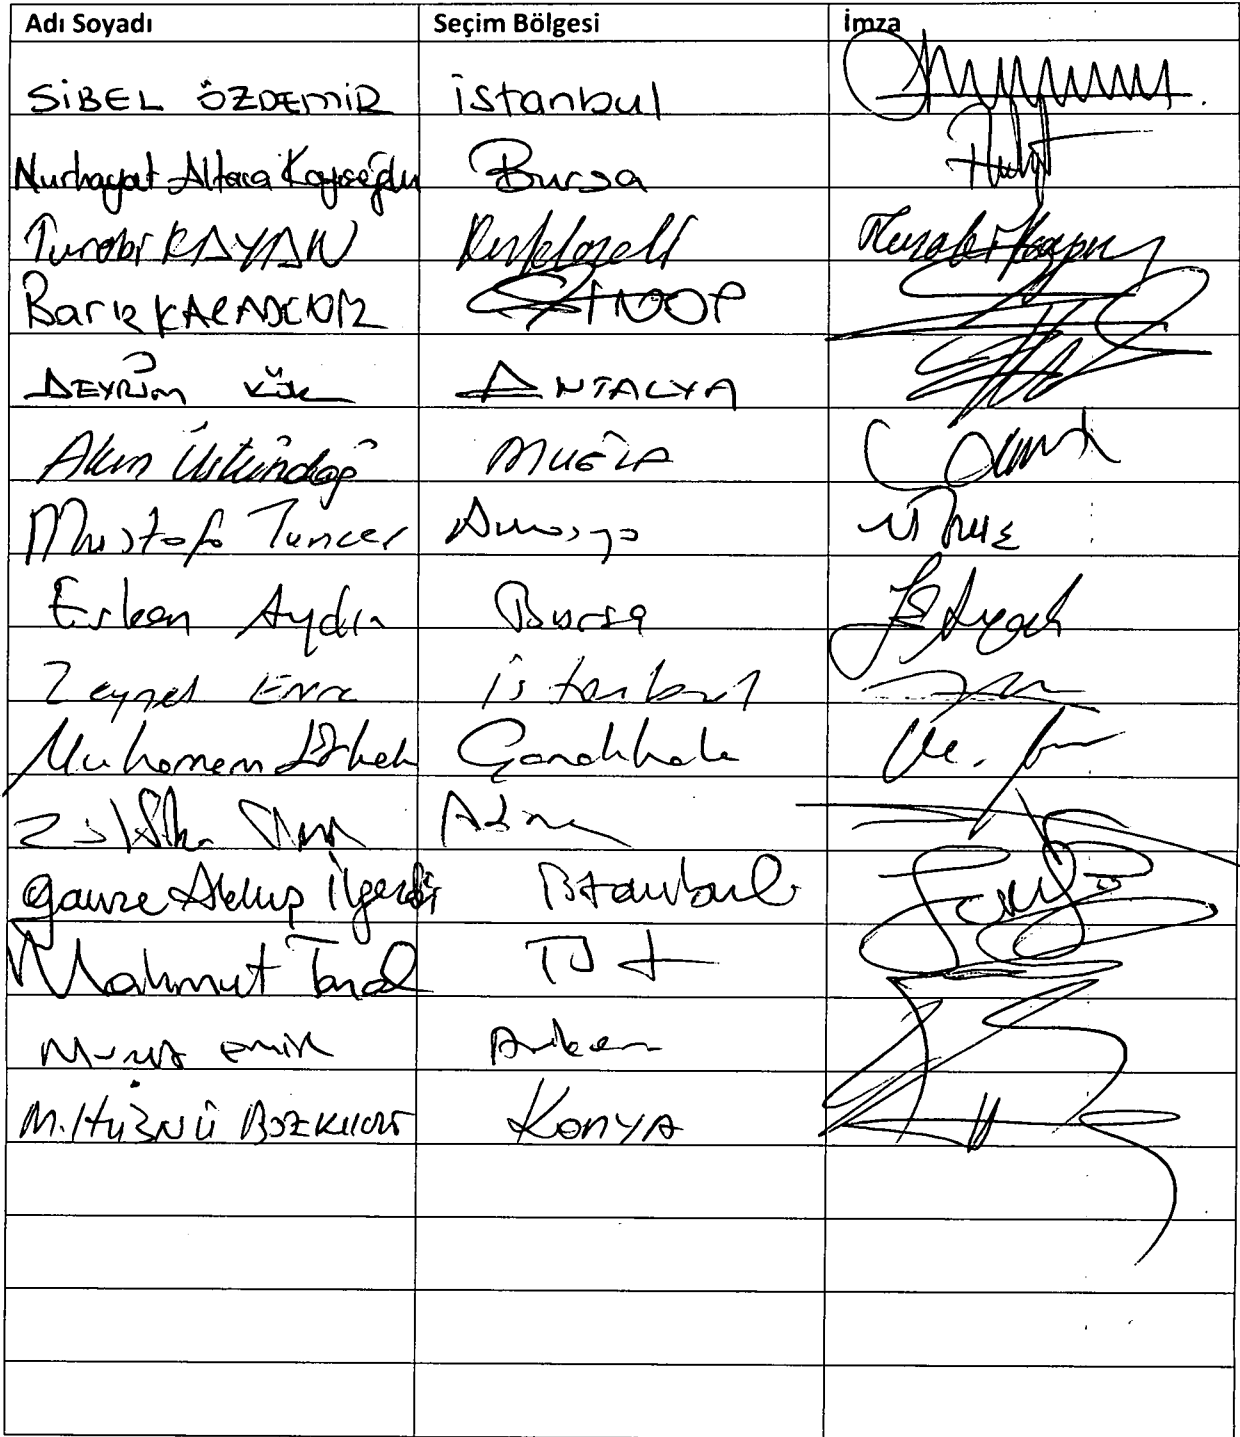 Adı Soyadı Seçim Bölgesi İmza
SİBEL ÖZDEMİR İstanbul
Nurhayat Altaca Kayışoğlu Bursa
Turabi KAYAN Kırklareli Turabi Kayan
Barış KARADENİZ SİNOP
DEVRİM KÖK ANTALYA
Akın Üstündağ MUĞLA
Mustafa Tuncer Amasya
Erkan Aydın Bursa
Zeynel Emre İstanbul
Muharrem Erkek Çanakkale
Adana
Gamze Akkuş İlgezdi İstanbul
Mahmut Tanal İst
Murat Emir Ankara
M. HÜSNÜ BOZKURT KONYA